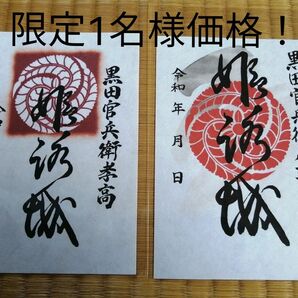 限定1名様価格！
黒田官兵衛孝高
姫路城
黒田官兵衛
姫路城
令和 年 月 日